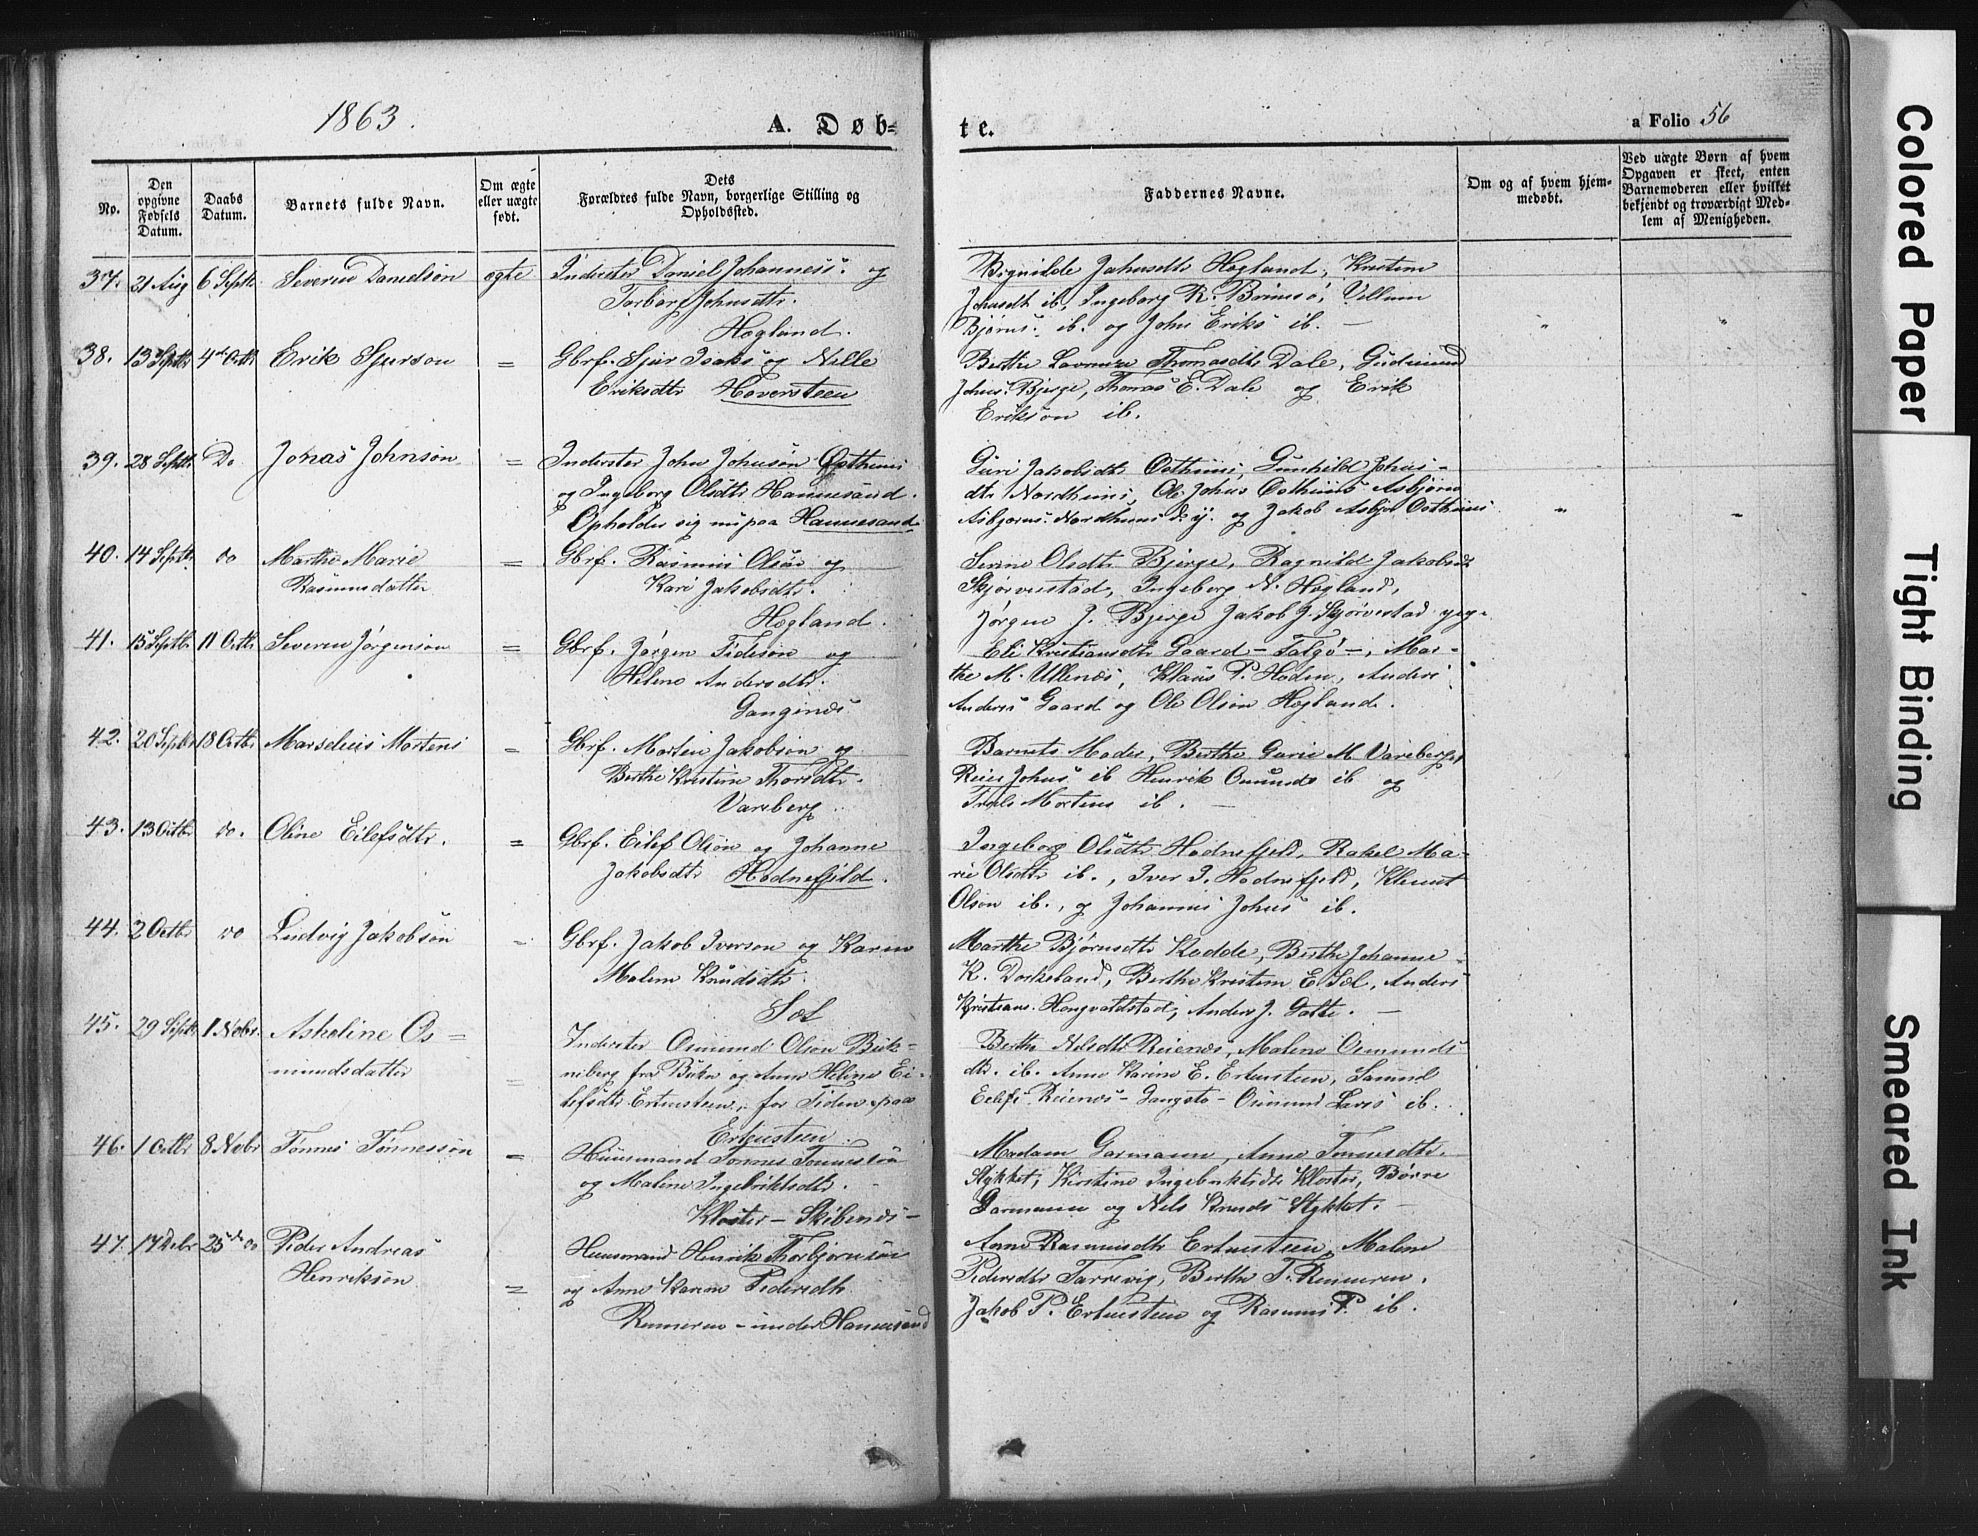 1863.
A. Døb-
te.
a Folio 56
No.
Den opgivne Fødsels Datum.
Daabs Datum.
Barnets fulde Navn.
Om ægte eller uægte født.
Dets Forældres fulde Navn, borgerlige Stilling og Opholdssted.
Faddernes Navne.
Om og af hvem hjemmedøbt.
Ved uægte Børn af hvem Opgaven er skeet, enten Barnemoderen eller hvilket bekjendt og troværdigt Medlem af Menigheden.
37. 21 Aug 6 Septbr Severin Danielsøn ægte Inderster Daniel Johanness. og
Torborg Johnsdtr.
Hogland.
Johnsdtr Hogland, Kristine
Johnsdtr ib, Ingeborg R. Brimsø, Villum
Bjørns. ib. og John Eriks ib. —
38. 13 Septbr 4de Octbr Erik Sjurson = Gbrf. Sjur Isaks og Nille
Eriksdtr Hoversteen
Berthe Thomasdtr Dale, Gudmund
Johns. Bjerge, Thomas E. Dale og Erik
Erikson ib.
39. 28 Septbr Do Jonas Johnsøn = Inderster John Johnsøn Østhuus
og Ingeborg Olsdtr Hannesand.
Opholder sig nu paa Hannesand.
Guri Jakobsdtr Østhuus, Gunhild Johns-
dtr Nordhuus, Ole Johns Østhuus Asbjørn
Asbjørns. Nordhuus d.y. og Jakob Asbjør Østhuus
40. 14 Septbr do Marthe Marie
Rasmusdatter
= Gbrf. Rasmus Olsøn og
Kari Jakobsdtr.
Hogland.
Serine Olsdtr Bjerge, Ragnild Jakobsdtr
Skjørvestad, Ingeborg N. Hogland,
Jørgen J. Bjerge Jakob J. Skjørvestad
41. 15 Septbr 11 Octbr Severin Jørgensøn = Gbrf. Jørgen Tideson og
Helene Andersdtr.
Gangenæs
Eli Kristiansdtr Gaard – Talgø –, Mar-
the M. Ullenæs, Klaus P. Hoden, Anders
Anders Gaard og Ole Olsøn Hogland.
42. 20 Septbr 18 Octbr Marselius Mortens = Gbrf. Morten Jakobson og
Berthe Kristine Thorsdtr.
Vareberg.
Barnets Moder, Berthe Gurie M. Vareberg,
Reier Johns ib Henrik Omunds ib og
Mortens ib. —
43. 13 Octbr do. Oline Eilefsdtr. = Gbrf. Eilef Olsøn og Johanne
Jakobsdtr Hodnefjeld.
Ingeborg Olsdtr Hodnefjeld, Rakel Ma-
rie Olsdtr ib., Iver I. Hodnefjeld, Klemet
Olsøn ib., og Johannes Johns ib.
44. 2 Octbr do Ludvig Jakobsøn = Gbrf. Jakob Iverson og Karen
Malene Knudsdtr.
Sæl
Marthe Bjørnsdtr Rodde, Berthe Johanne
K. Berthe Kristine E. Sæl, Anders
Kristians. Anders J. Gatte. —
45. 29 Septbr 1 Nobr. Askeline Os-
mundsdatter
= Inderster Osmund Olson Buk-
neberg fra Bukn og Anne Helene Ei-
lefsdtr Ertensteen, for Tiden paa
Ertensteen.
Berthe Nilsdtr Reienæs, Malene Osmunds
dtr. ib. Anne Karine E. Ertensteen, Samuel
Eilefs Reienæs – – Osmund Lars ib.
46. 1 Octbr 8 Nobr Tønnes Tønnessøn = Huusmand Tønnes Tønnessøn
og Malene Ingebriktsdtr.
Kloster – Skibenæs –
Madam Garmann, Anne Tønnesdtr.
Stykket, Kirstine Ingebriktsdtr Kloster, Børre
Garmann og Nils Knuds Stykket. —
47. 17 Decbr 25 do Peder Andreas
Henriksøn
= Huusmand Henrik Thorbjørnsøn
og Anne Karine Pedersdtr.
Renneren – under Hannesand
Anne Rasmusdtr Ertensteen, Malene
Pedersdtr Tarrevig, Berthe T. Renneren.
Jakob P. Ertensteen og Rasmus P. ib.
Colored Paper
Tight Binding
Smeared Ink